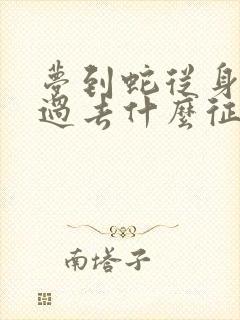 夢到蛇從身
過去什麼征
南塔子